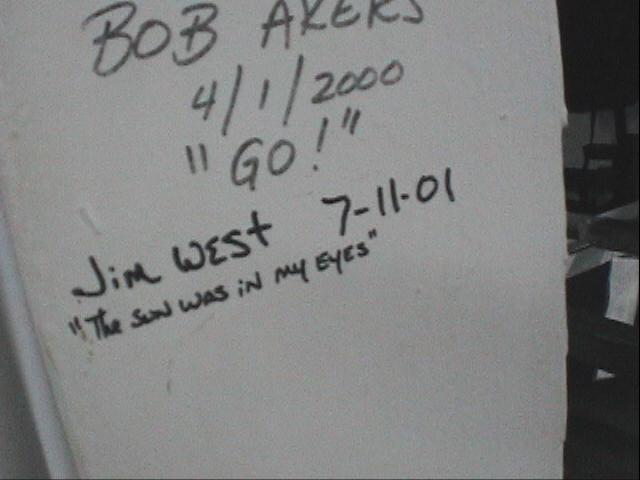 BOB AKERS
4/1/2000
"GO!"
Jim WEST 7-11-01
"The SUN WAS iN MY EYES"